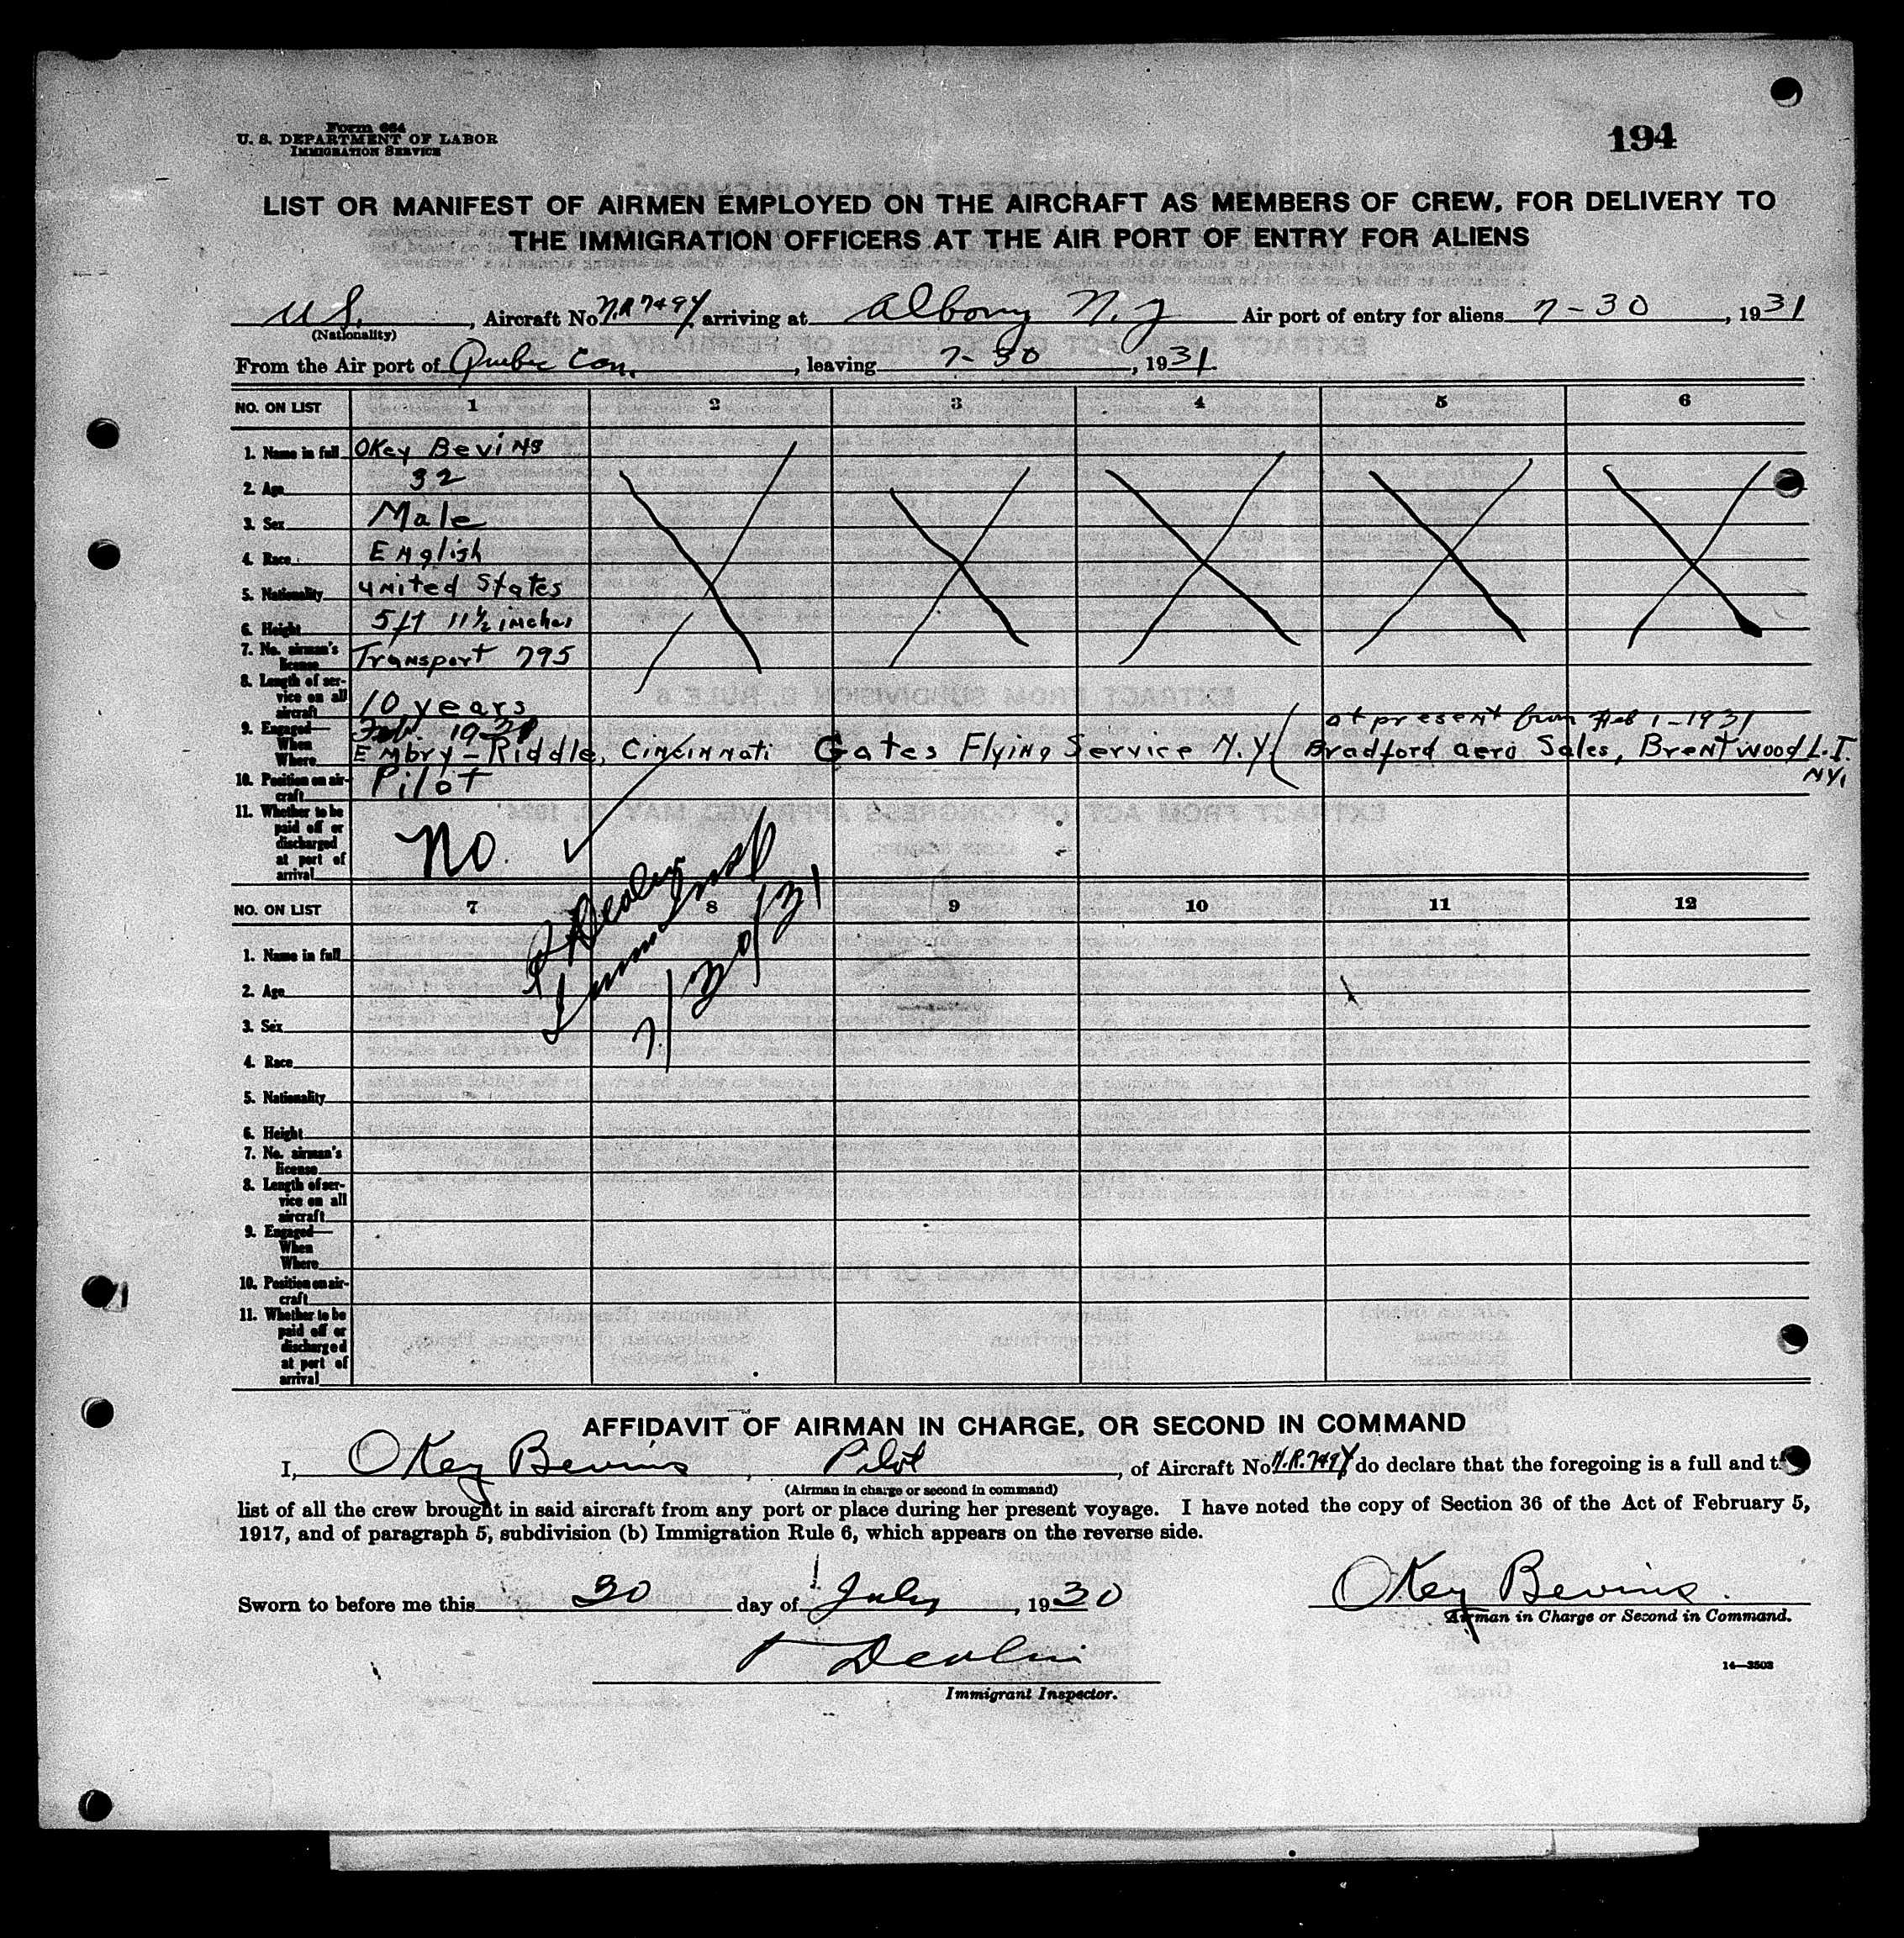 Form 664
U. S. DEPARTMENT OF LABOR
IMMIGRATION SERVICE
194
LIST OR MANIFEST OF AIRMEN EMPLOYED ON THE AIRCRAFT AS MEMBERS OF CREW, FOR DELIVERY TO
THE IMMIGRATION OFFICERS AT THE AIR PORT OF ENTRY FOR ALIENS
U.S., Aircraft No. arriving at Albany N.Y Air port of entry for aliens 7-30, 1931
(Nationality)
From the Air port of Quebec Can., leaving 7-30, 1931
NO. ON LIST 1 2 3 4 5 6
1. Name in full OKey Bevins
2. Age 32
3. Sex Male
4. Race English
5. Nationality United States
6. Height 5ft 11½ inches
7. No. airman's license Transport 795
8. Length of service on all aircraft 10 years
9. Engaged— When Feb. 1931 at present from Feb 1-1931
Where Embry-Riddle, Cincinnati Gates Flying Service N.Y ( Bradford aero Sales, Brentwood L.I. NY.
10. Position on aircraft Pilot
11. Whether to be paid off or discharged at port of arrival No.
Immg Insp
7/30/31
NO. ON LIST 7 8 9 10 11 12
1. Name in full
2. Age
3. Sex
4. Race
5. Nationality
6. Height
7. No. airman's license
8. Length of service on all aircraft
9. Engaged— When Where
10. Position on aircraft
11. Whether to be paid off or discharged at port of arrival
AFFIDAVIT OF AIRMAN IN CHARGE, OR SECOND IN COMMAND
I, OKey Bevins, Pilot, of Aircraft No. do declare that the foregoing is a full and
(Airman in charge or second in command)
list of all the crew brought in said aircraft from any port or place during her present voyage. I have noted the copy of Section 36 of the Act of February 5,
1917, and of paragraph 5, subdivision (b) Immigration Rule 6, which appears on the reverse side.
Sworn to before me this 30 day of July, 1930
OKey Bevins.
Airman in Charge or Second in Command.
Immigrant Inspector.
14—3503